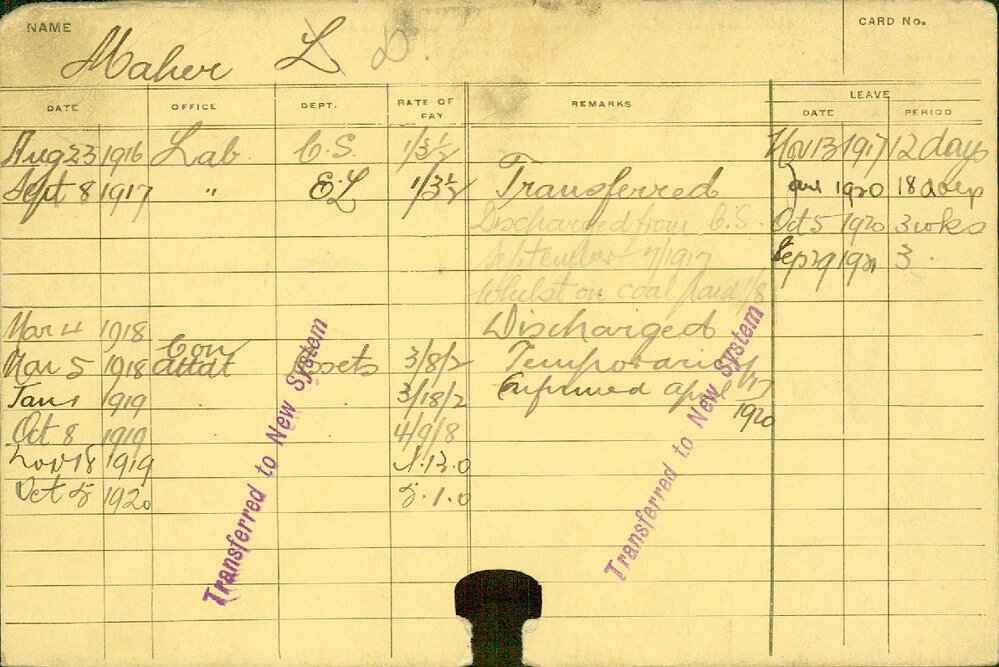 NAME Maher L D. CARD No.
DATE OFFICE DEPT. RATE OF PAY REMARKS LEAVE DATE PERIOD
Aug 23 1916 Lab. C.S. 1/3½ Nov 13 1917 12 days
Sept 8 1917 " EL 1/3½ Transferred Jan 1 1920 18 days
Discharged from C.S. Oct 5 1920 3 wks
September 7/1917 Sep 29 1921 3.
Whilst on coal paid 1/8
Mar 4 1918 Discharged
Mar 5 1918 Con attdt Assets 3/8/2 Temporarily
Jan 1 1919 3/18/2 Confirmed April
1920
Oct 8 1919 4/9/8
Nov 18 1919 4.13.0
Oct 5 1920 5.1.0
Transferred to New System
Transferred to New System